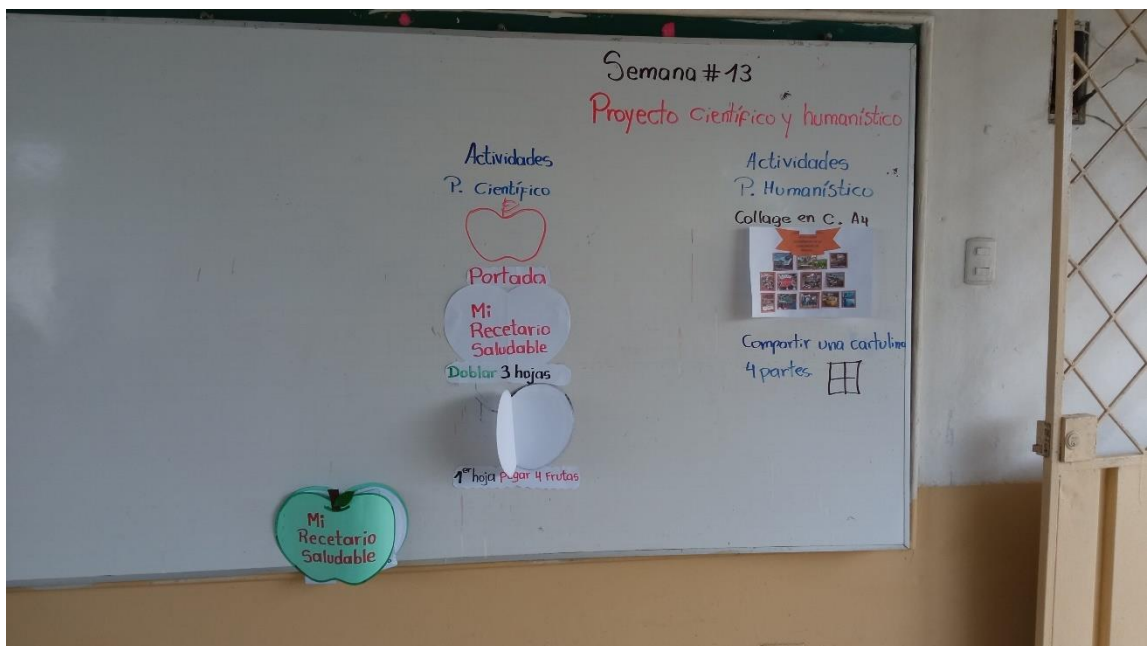 Semana # 13
Proyecto científico y humanístico
Actividades
P. Científico
Portada
Mi
Recetario
Saludable
Doblar 3 hojas
1er hoja pegar 4 Frutas
Mi
Recetario
Saludable
Actividades
P. Humanístico
Collage en C. A4
Compartir una cartulina
4 partes